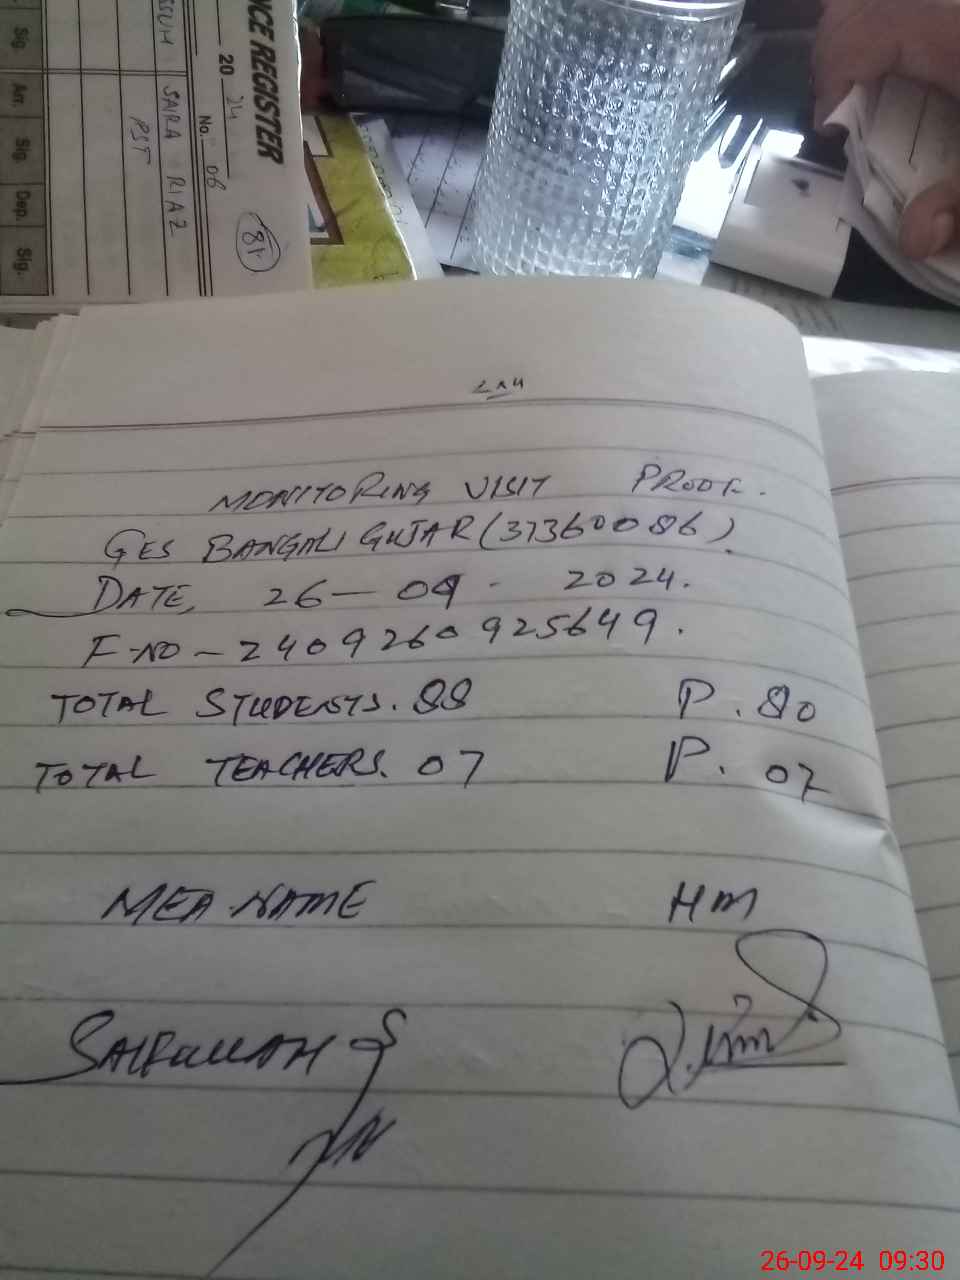 NCE REGISTER
20 24
No. 06
81
SAIRA RIAZ
PST
Sig. Arr. Sig. Dep. Sig.
MONITORING VISIT PROOF.
GES BANGALI GUJAR (37360086).
DATE, 26-09-2024.
F-NO - 2409260925649.
TOTAL STUDENTS. 88 P. 80
TOTAL TEACHERS. 07 P. 07
MEA NAME HM
SAIFULLAH
26-09-24 09:30